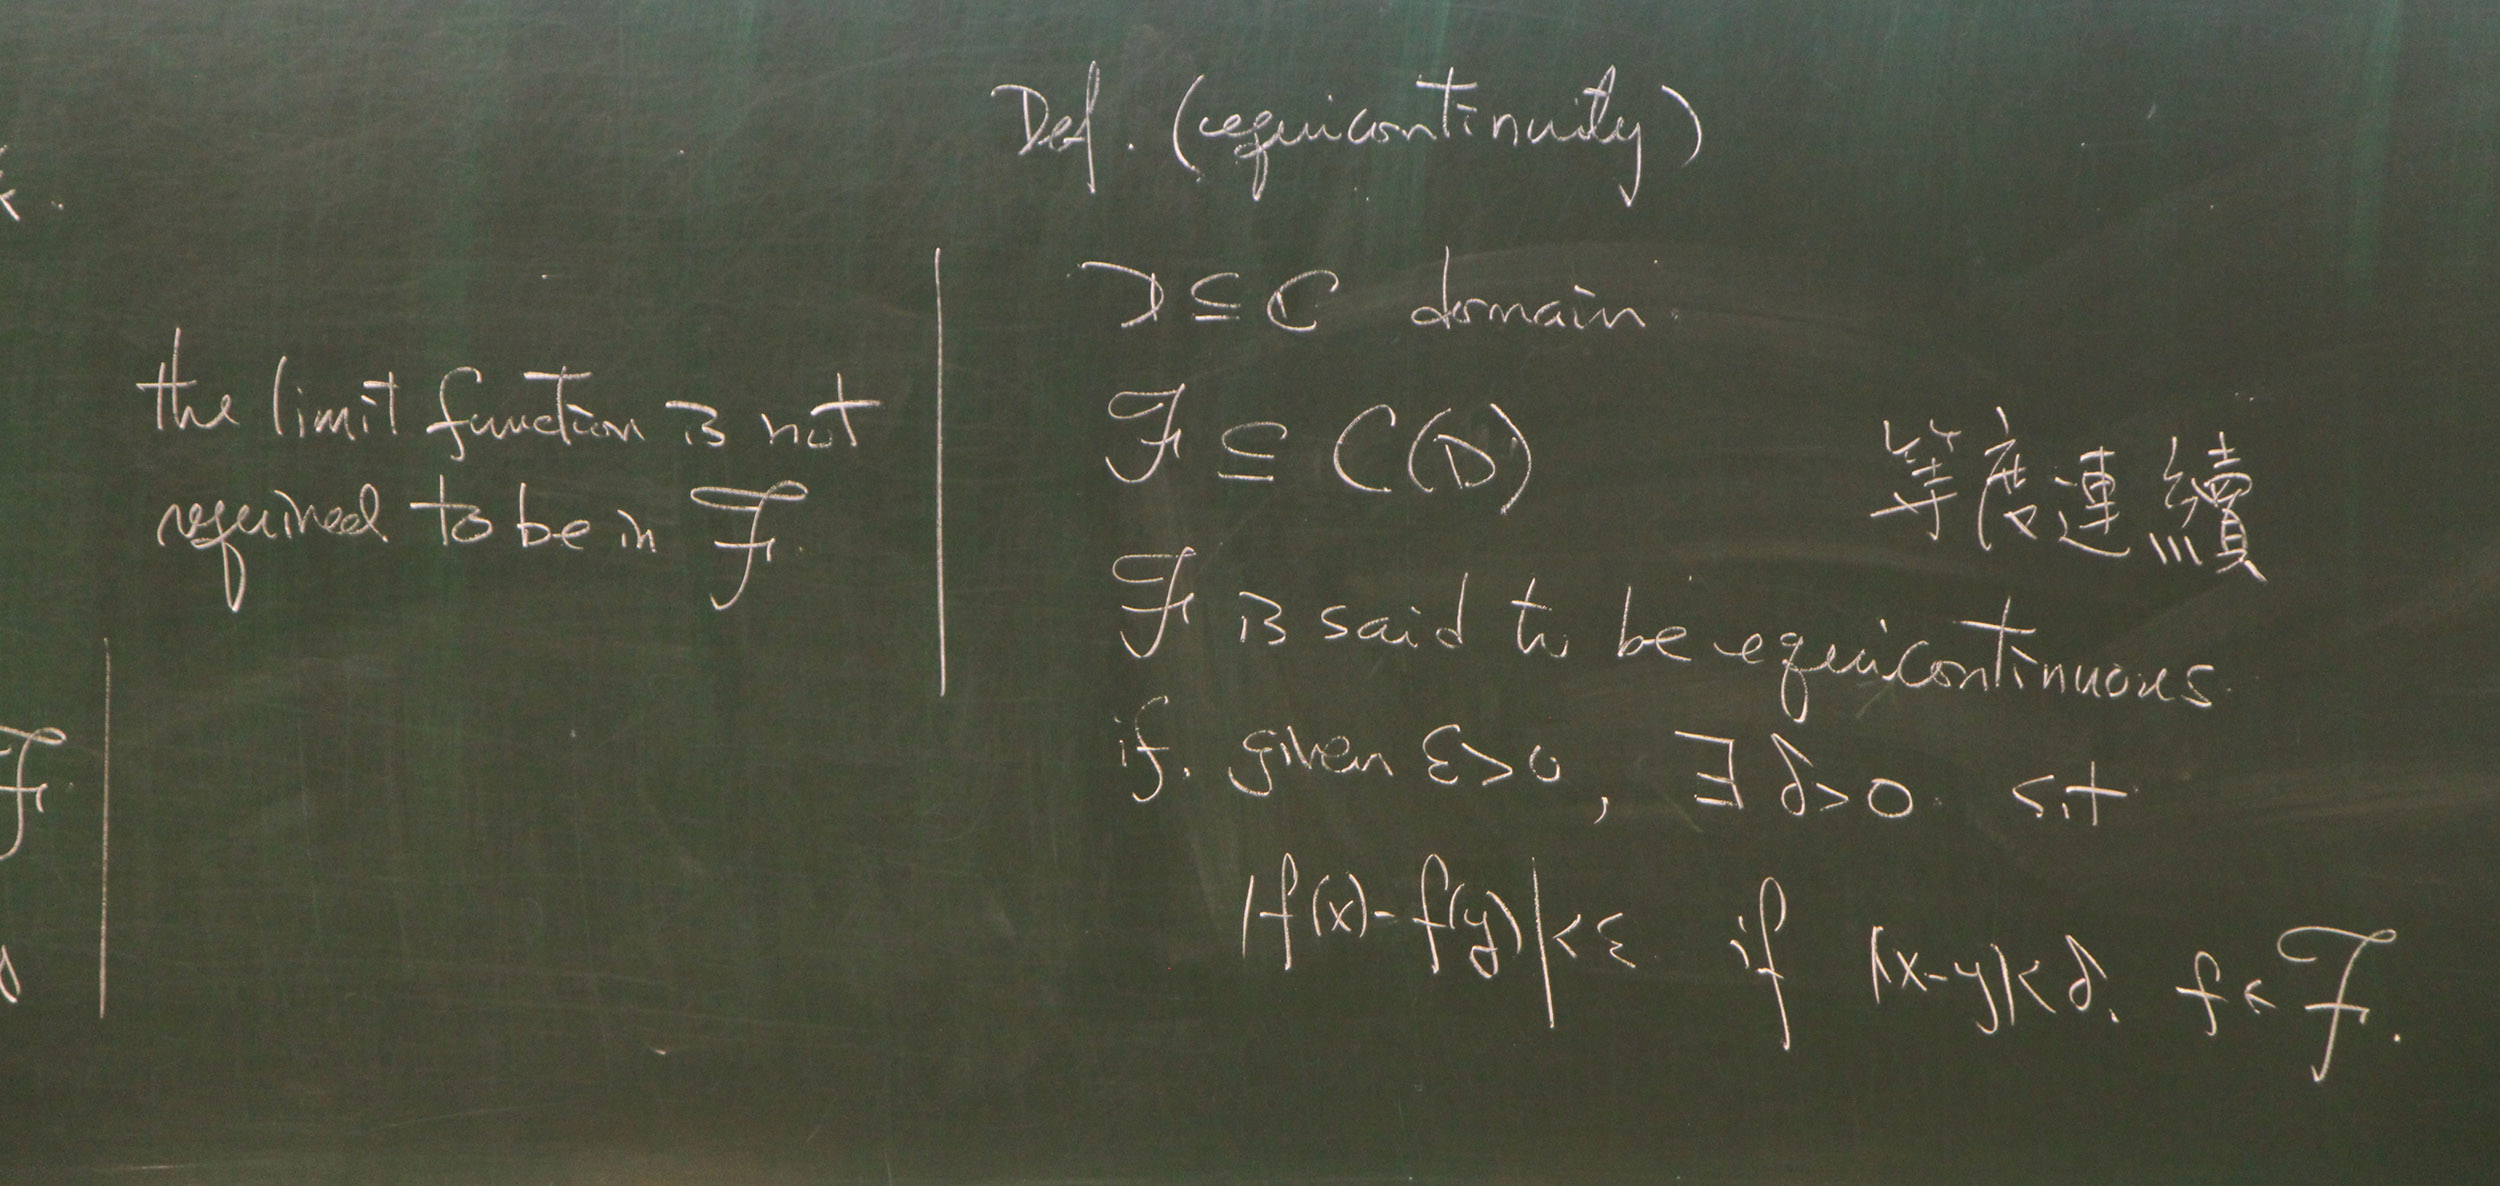 the limit function is not
required to be in ℱ.
ℱ
Def. (equicontinuity)
D ⊆ ℂ domain.
ℱ ⊆ C(D)
等度連續
ℱ is said to be equicontinuous
if. given ε>0, ∃ δ>0. s.t
|f(x)-f(y)|<ε. if |x-y|<δ, f∈ℱ.